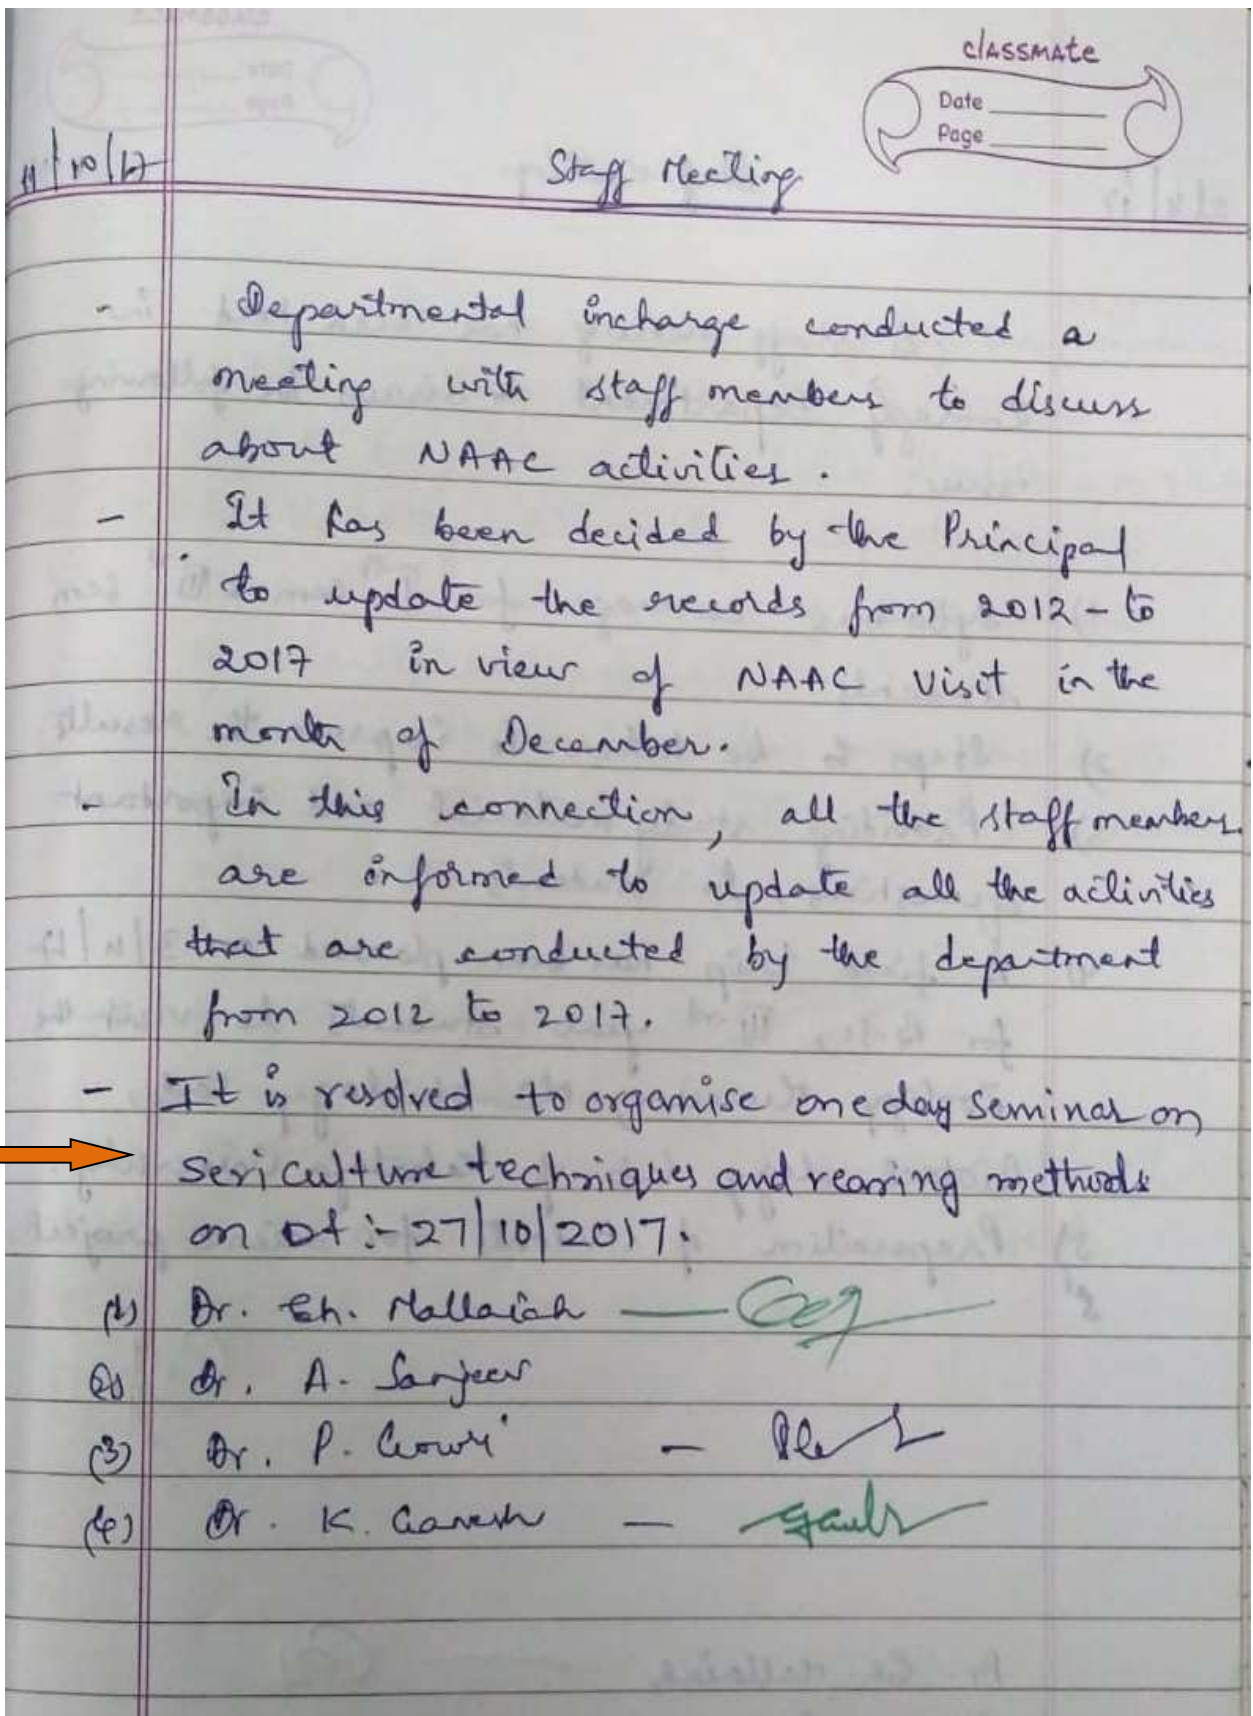 classmate
Date
Page
11/10/17
Staff Meeting
- Departmental incharge conducted a
meeting with staff members to discuss
about NAAC activities.
- It has been decided by the Principal
to update the records from 2012 - to
2017 in view of NAAC visit in the
month of December.
- In this connection, all the staff members
are informed to update all the activities
that are conducted by the department
from 2012 to 2017.
- It is resolved to organise one day seminar on
sericulture techniques and rearing methods
on Dt :- 27/10/2017.
(1) Dr. Ch. Mallaiah —
(2) Dr. A. Sanjeev
(3) Dr. P. Gowri -
(4) Dr. K. Ganesh -